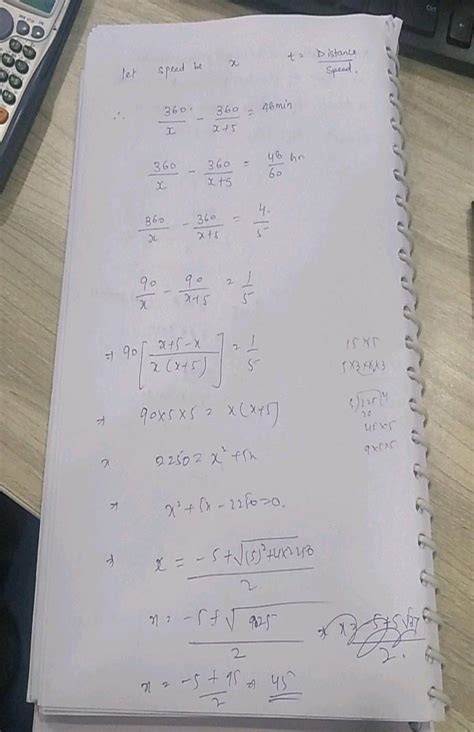 let speed be x t = Distance / Speed.
∴ 360/x - 360/x+5 = 48min
360/x - 360/x+5 = 48/60 hr
360/x - 360/x+5 = 4/5
90/x - 90/x+5 = 1/5
⇒ 90[x+5-x / x(x+5)] = 1/5
⇒ 90×5×5 = x(x+5)
2250 = x² + 5x
⇒ x² + 5x - 2250 = 0.
⇒ x = -5+√(5)²+4× / 2
x = -5+√9025 / 2
x = -5+95 / 2 ⇒ 45
15×5
45×5
9×5×5